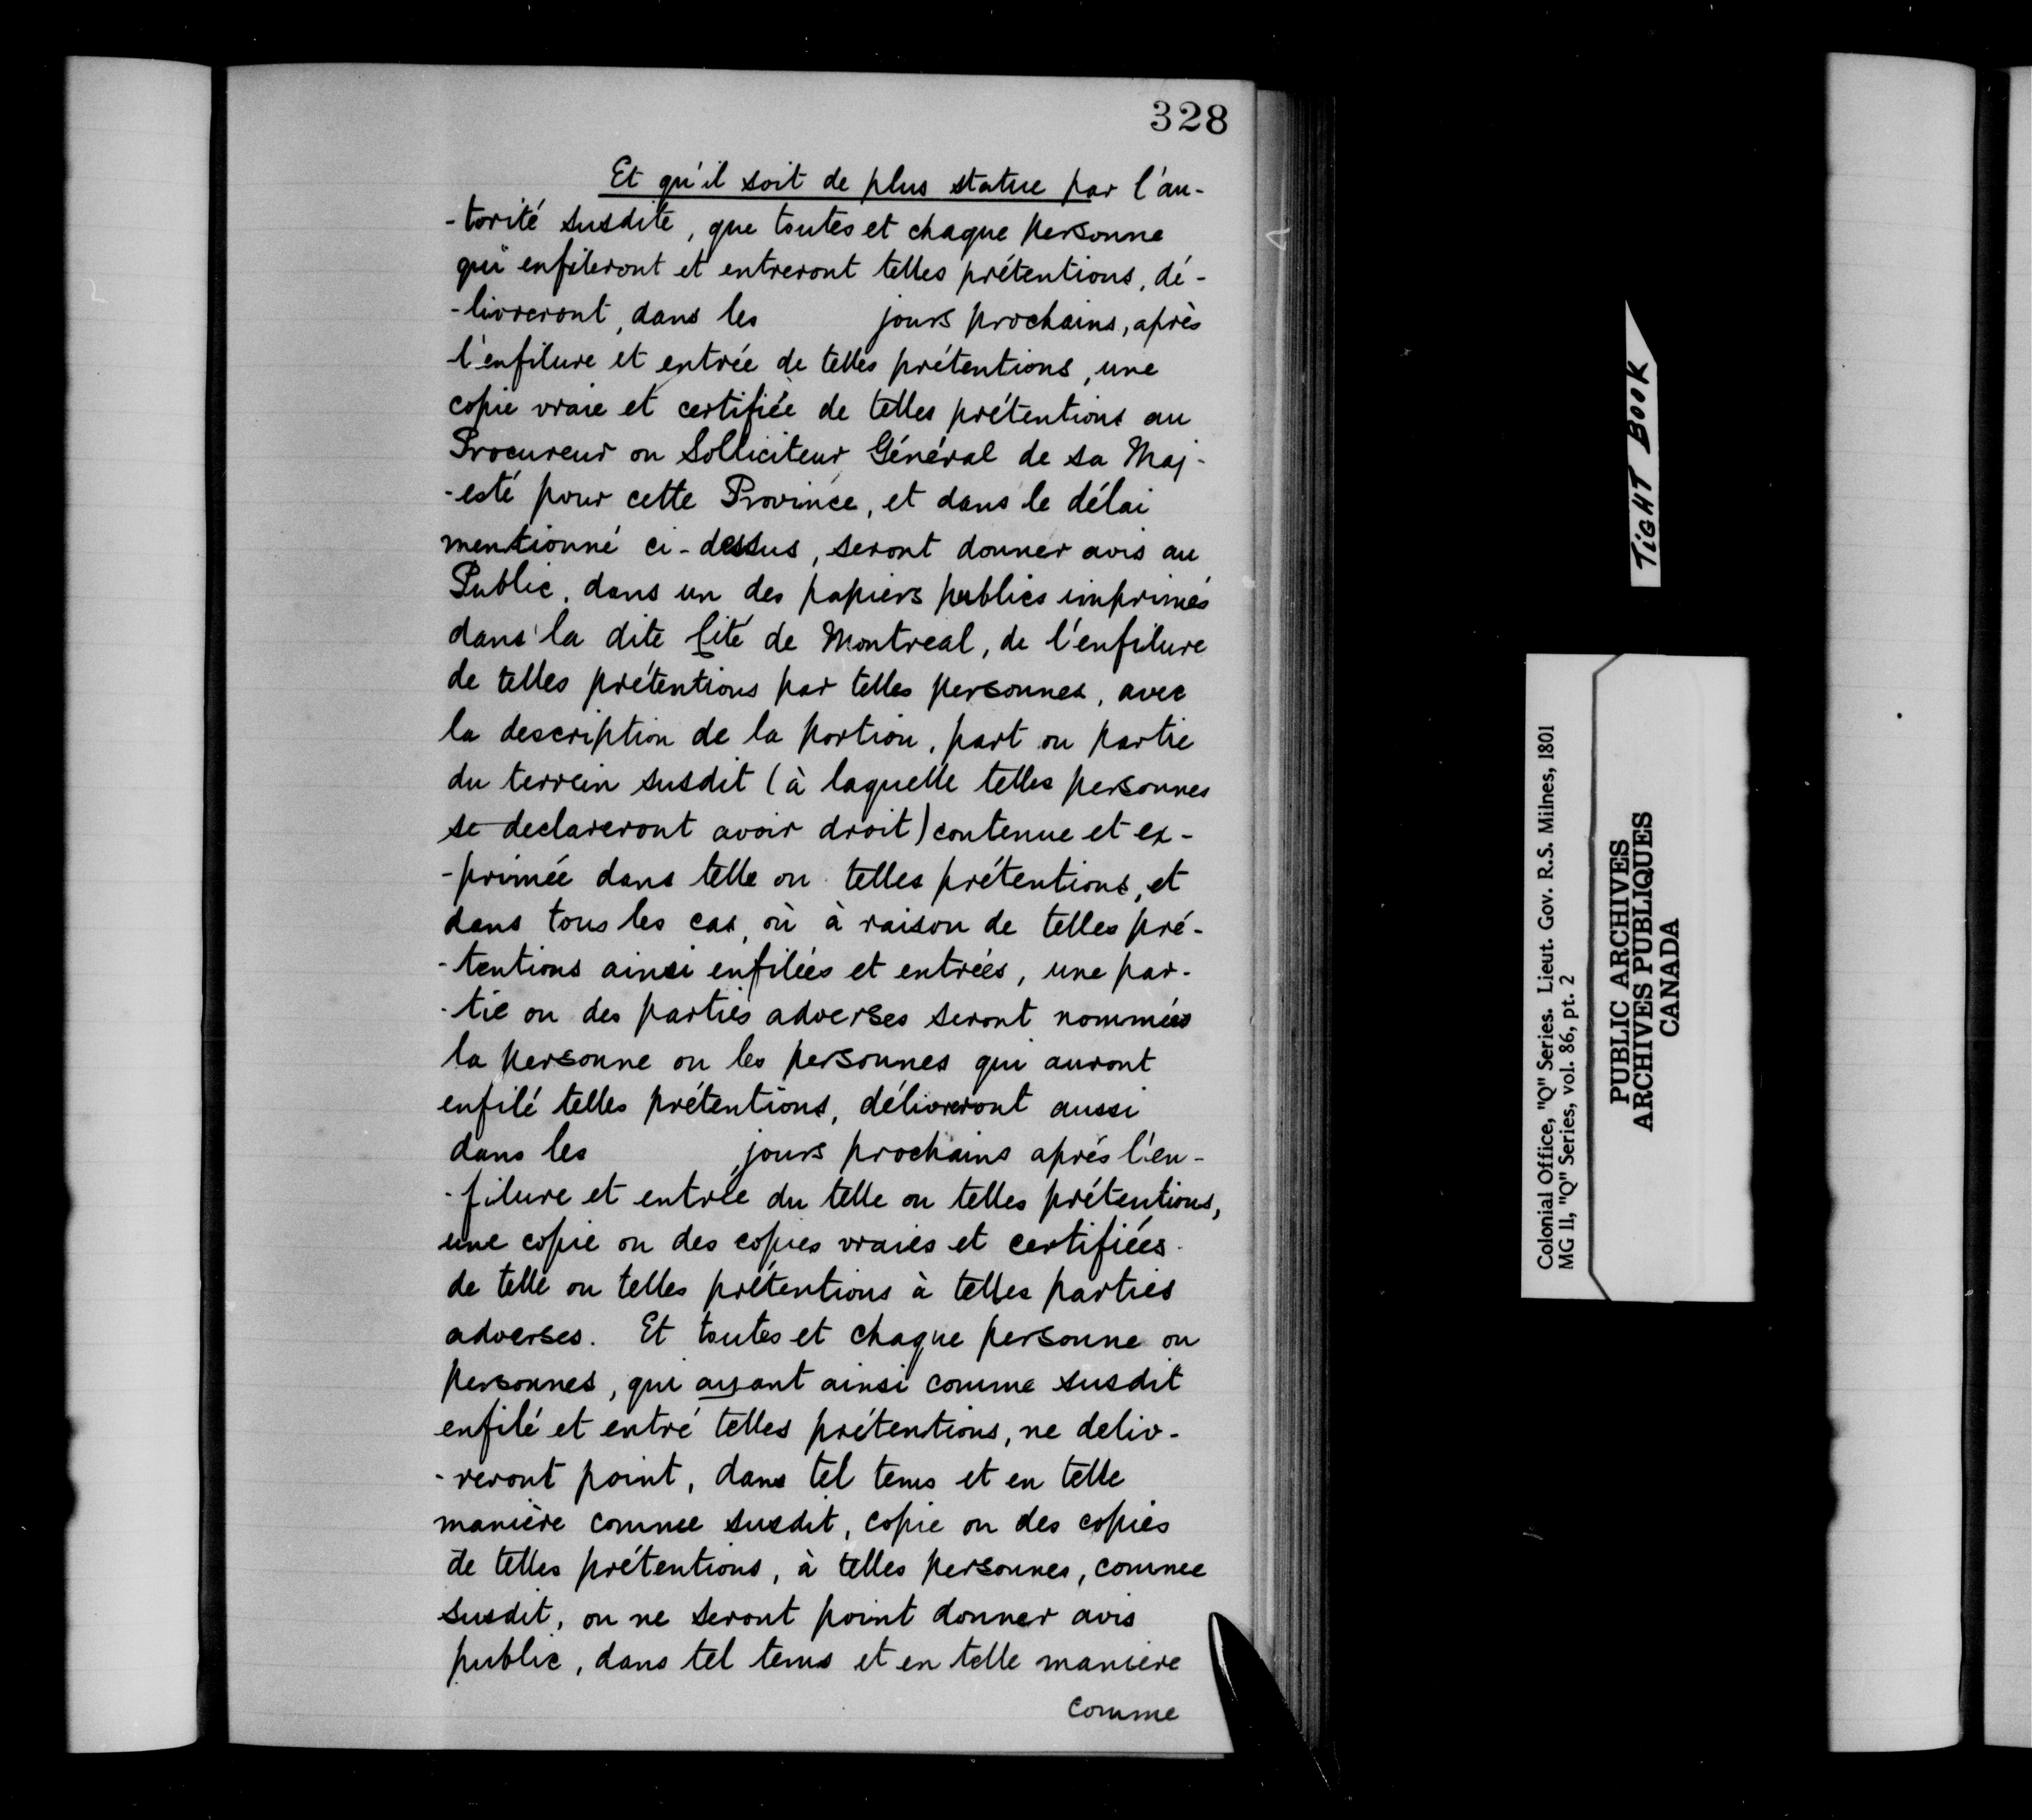 328
Et qu'il soit de plus statue par l'au-
-torité susdite, que toutes et chaque personne
qui enfileront et entreront telles prétentions, dé-
-livreront, dans les jours prochains, après
l'enfilure et entrée de telles prétentions, une
copie vraie et certifiée de telles prétentions au
Procureur ou Solliciteur Général de sa Maj-
-esté pour cette Province, et dans le délai
mentionné ci-dessus, seront donner avis au
Public, dans un des papiers publics imprimés
dans la dite Cité de Montreal, de l'enfilure
de telles prétentions par telles personnes, avec
la description de la portion, part ou partie
du terrein susdit (à laquelle telles personnes
se declareront avoir droit) contenue et ex-
-primée dans telle ou telles prétentions, et
dans tous les cas, où à raison de telles pré-
-tentions ainsi enfilées et entrées, une par-
-tie ou des parties adverses seront nommées
la personne ou les personnes qui auront
enfilé telles prétentions, délivreront aussi
dans les jours prochains après l'en-
-filure et entrée du telle ou telles prétentions,
une copie ou des copies vraies et certifiées
de telle ou telles prétentions à telles parties
adverses. Et toutes et chaque personne ou
personnes, qui ayant ainsi comme susdit
enfilé et entré telles prétentions, ne deliv-
-reront point, dans tel tems et en telle
manière comme susdit, copie ou des copies
de telles prétentions, à telles personnes, comme
susdit, ou ne seront point donner avis
public, dans tel tems et en telle manière
comme
TIGHT BOOK
Colonial Office, "Q" Series. Lieut. Gov. R.S. Milnes, 1801
MG 11, "Q" Series, vol. 86, pt. 2
PUBLIC ARCHIVES
ARCHIVES PUBLIQUES
CANADA